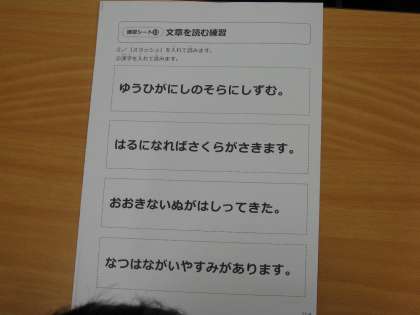 練習シート① 文章を読む練習
①／（スラッシュ）を入れて読みます。
②漢字を入れて読みます。
ゆうひがにしのそらにしずむ。
はるになればさくらがさきます。
おおきないぬがはしってきた。
なつはながいやすみがあります。